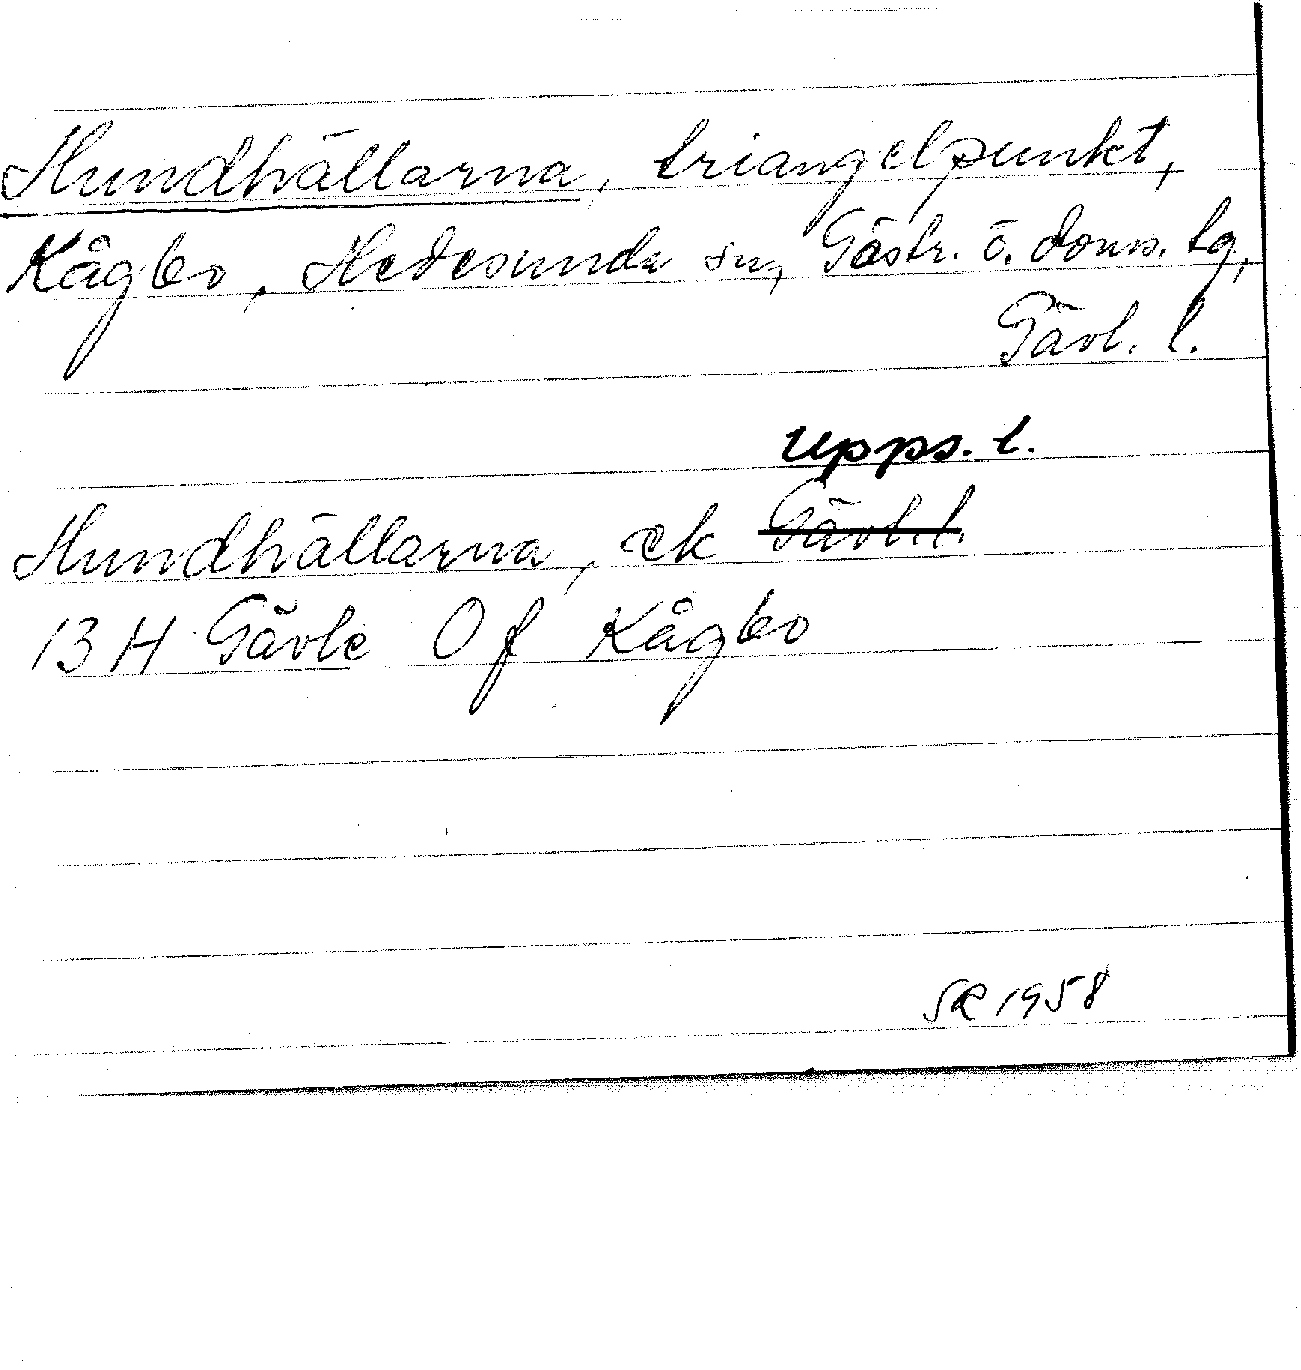 Hundhällarna, triangelpunkt,
Kågbo, Hedesunda sn, Gästr. ö. doms. tg,
Gävl. l.
Upps. l.
Hundhällarna, ek Gävl. l.
13 H Gävle 0 f Kågbo
SR 1958